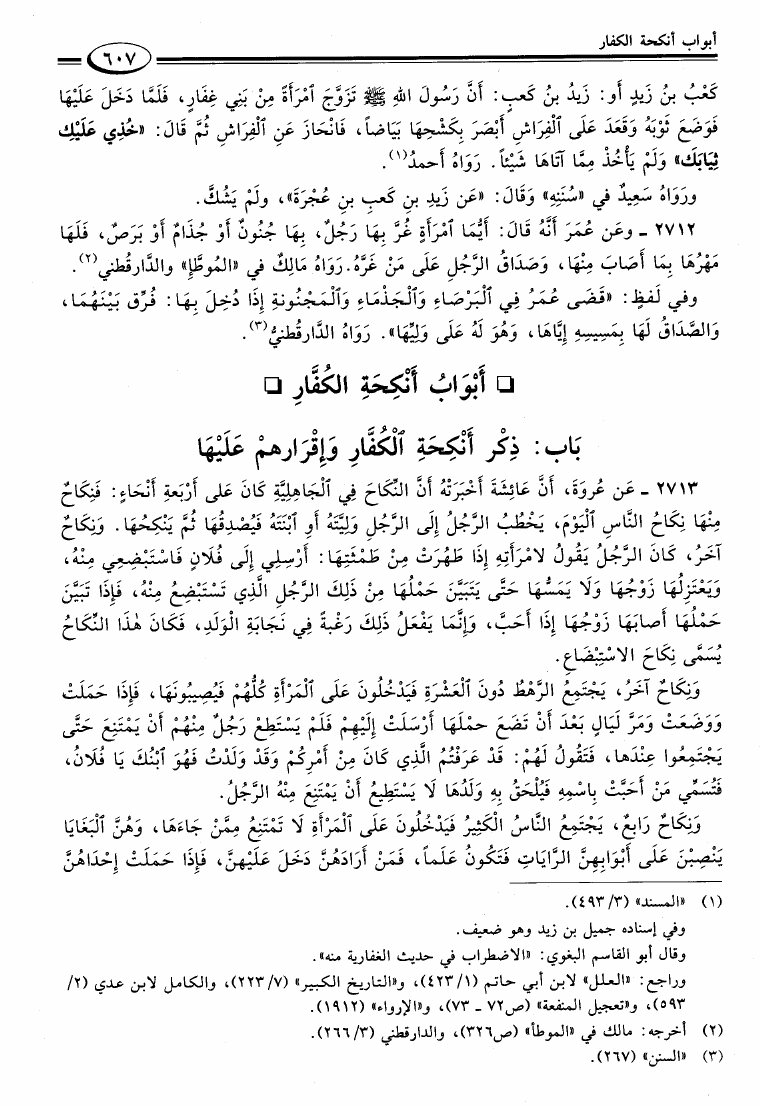 أبواب أنكحة الكفار
٦٠٧
كَعْبُ بنُ زَيدٍ أو: زَيدُ بنُ كَعبٍ: أَنَّ رَسُولَ اللهِ ﷺ تَزَوَّجَ ٱمْرَأَةً مِنْ بَنِي غِفَارٍ، فَلَمَّا دَخَلَ عَلَيْهَا
فَوَضَعَ ثَوْبَهُ وَقَعَدَ عَلَى ٱلْفِرَاشِ أَبْصَرَ بِكَشْحِهَا بَيَاضاً، فَانْحَازَ عَنِ ٱلْفِرَاشِ ثُمَّ قَالَ: «خُذِي عَلَيْكِ
ثِيَابَكِ» وَلَمْ يَأْخُذْ مِمَّا آتَاهَا شَيْئاً. رَوَاهُ أَحمدُ(١).
ورَوَاهُ سَعِيدٌ في «سُنَنِهِ» وَقَالَ: «عَن زَيدِ بنِ كَعبِ بنِ عُجْرَةَ»، ولَمْ يَشُكَّ.
٢٧١٢ - وعَن عُمَرَ أَنَّهُ قَالَ: أَيُّمَا ٱمْرَأَةٍ غُرَّ بِهَا رَجُلٌ، بِهَا جُنُونٌ أَوْ جُذَامٌ أَوْ بَرَصٌ، فَلَهَا
مَهْرُهَا بِمَا أَصَابَ مِنْهَا، وَصَدَاقُ الرَّجُلِ عَلَى مَنْ غَرَّهُ. رَوَاهُ مَالِكٌ في «المُوطَّإِ» والدَّارقُطني(٢).
وفي لَفظٍ: «قَضَى عُمَرُ فِي ٱلْبَرْصَاءِ وَٱلْجَذْمَاءِ وَٱلْمَجْنُونةِ إِذَا دُخِلَ بِهَا: فُرِّق بَيْنَهُمَا،
وَالصَّدَاقُ لَهَا بِمَسِيسِهِ إِيَّاهَا، وَهُوَ لَهُ عَلَى وَلِيِّهَا». رَوَاهُ الدَّارقُطنيُّ(٣).
❑ أَبْوَابُ أَنْكِحَةِ الكُفَّارِ ❑
بَاب: ذِكْر أَنْكِحَةِ ٱلْكُفَّارِ وَإِقْرَارِهمْ عَلَيْهَا
٢٧١٣ - عَن عُروَةَ، أَنَّ عَائِشَةَ أَخبَرَتْهُ أَنَّ النِّكَاحَ فِي ٱلْجَاهِلِيَّةِ كَانَ عَلى أَرْبَعةِ أَنْحَاءٍ: فَنِكَاحٌ
مِنْهَا نِكَاحُ النَّاسِ ٱلْيَوْمَ، يَخْطُبُ الرَّجُلُ إِلَى الرَّجُلِ وَلِيَّتَهُ أَوِ ٱبْنَتَهُ فَيُصْدِقُهَا ثُمَّ يَنْكِحُهَا. وَنِكَاحٌ
آخَرُ، كَانَ الرَّجُلُ يَقُولُ لامْرَأَتِهِ إِذَا طَهُرَتْ مِنْ طَمْثِهَا: أَرْسِلِي إِلَى فُلَانٍ فَاسْتَبْضِعِي مِنْهُ،
وَيَعْتَزِلُهَا زَوْجُهَا وَلَا يَمَسُّهَا حَتَّى يَتَبَيَّنَ حَمْلُهَا مِنْ ذَلِكَ الرَّجُلِ الَّذِي تَسْتَبْضِعُ مِنْهُ، فَإِذَا تَبَيَّنَ
حَمْلُهَا أَصابَهَا زَوْجُهَا إِذَا أَحَبَّ، وَإِنَّمَا يَفْعَلُ ذَلِكَ رَغْبةً فِي نَجَابَةِ الْوَلَدِ، فَكَانَ هٰذَا النِّكَاحُ
يُسَمَّى نِكَاحَ الاسْتِبْضَاعِ.
وَنِكَاحٌ آخَرُ، يَجْتَمِعُ الرَّهْطُ دُونَ ٱلْعَشْرَةِ فَيَدْخُلُونَ عَلَى ٱلْمَرْأَةِ كُلُّهُمْ فَيُصِيبُونَهَا، فَإِذَا حَمَلَتْ
وَوَضَعَتْ وَمَرَّ لَيَالٍ بَعْدَ أَنْ تَضَعَ حمْلَهَا أَرْسَلَتْ إِلَيْهِمْ فَلَمْ يَسْتَطِعْ رَجُلٌ مِنْهُمْ أَنْ يَمْتَنِعَ حَتَّى
يَجْتَمِعُوا عِنْدَها، فَتَقُولُ لَهُمْ: قَدْ عَرَفْتُمُ الَّذِي كَانَ مِنْ أَمْرِكُمْ وَقَدْ وَلَدْتُ فَهُوَ ٱبْنُكَ يَا فُلَانُ،
فَتُسَمِّي مَنْ أَحَبَّتْ بِاسْمِهِ فَيُلْحَقُ بِهِ وَلَدُهَا لَا يَسْتَطِيعُ أَنْ يَمْتَنِعَ مِنْهُ الرَّجُلُ.
وَنِكَاحٌ رَابِعٌ، يَجْتَمِعُ النَّاسُ الْكَثِيرُ فَيَدْخُلُونَ عَلَى الْمَرْأَةِ لَا تَمْتَنِعُ مِمَّنْ جَاءَهَا، وَهُنَّ ٱلْبَغَايَا
يَنْصِبْنَ عَلَى أَبْوَابِهِنَّ الرَّايَاتِ فَتَكُونُ عَلَماً، فَمَنْ أَرَادَهُنَّ دَخَلَ عَلَيْهِنَّ، فَإِذَا حَمَلَتْ إِحْدَاهُنَّ
(١) «المسند» (٤٩٣/٣).
وفي إسناده جميل بن زيد وهو ضعيف.
وقال أبو القاسم البغوي: «الاضطراب في حديث الغفارية منه».
وراجع: «العلل» لابن أبي حاتم (٤٢٣/١)، و«التاريخ الكبير» (٢٢٣/٧)، والكامل لابن عدي (٢/
٥٩٣)، و«تعجيل المنفعة» (ص٧٢ - ٧٣)، و«الإرواء» (١٩١٢).
(٢) أخرجه: مالك في «الموطأ» (ص٣٢٦)، والدارقطني (٢٦٦/٣).
(٣) «السنن» (٢٦٧).